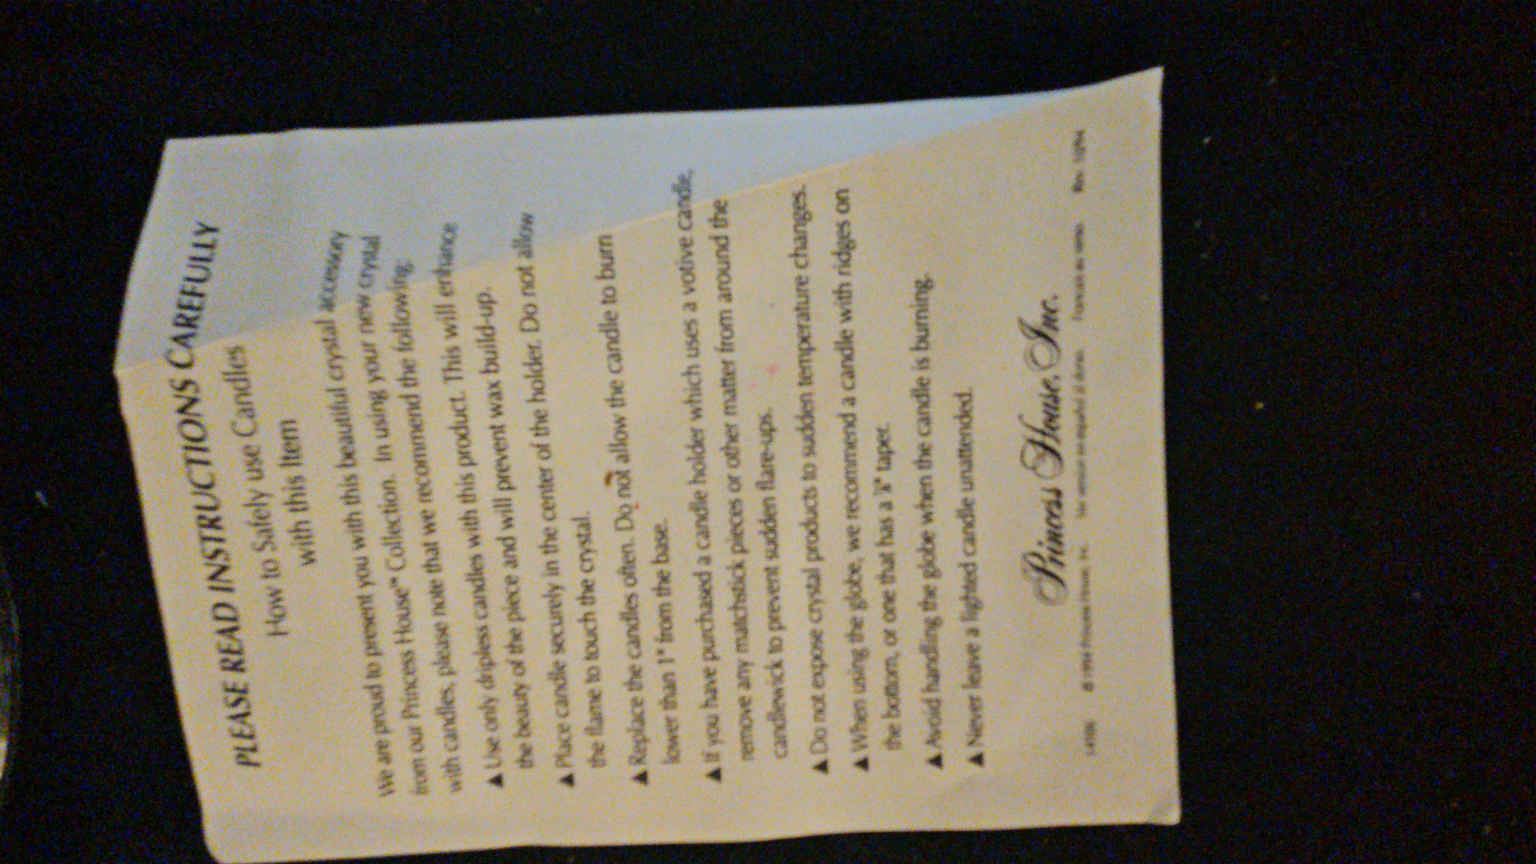 PLEASE READ INSTRUCTIONS CAREFULLY
How to Safely use Candles
with this Item
We are proud to present you with this beautiful crystal accessory
from our Princess House™ Collection. In using your new crystal
with candles, please note that we recommend the following:
▲ Use only dripless candles with this product. This will enhance
the beauty of the piece and will prevent wax build-up.
▲ Place candle securely in the center of the holder. Do not allow
the flame to touch the crystal.
▲ Replace the candles often. Do not allow the candle to burn
lower than 1" from the base.
▲ If you have purchased a candle holder which uses a votive candle,
remove any matchstick pieces or other matter from around the
candlewick to prevent sudden flare-ups.
▲ Do not expose crystal products to sudden temperature changes.
▲ When using the globe, we recommend a candle with ridges on
the bottom, or one that has a taper.
▲ Avoid handling the globe when the candle is burning.
▲ Never leave a lighted candle unattended.
Princess House, Inc.
© 1994 Princess House, Inc. Ver version español al dorso. Français au verso. Rev. 10/94